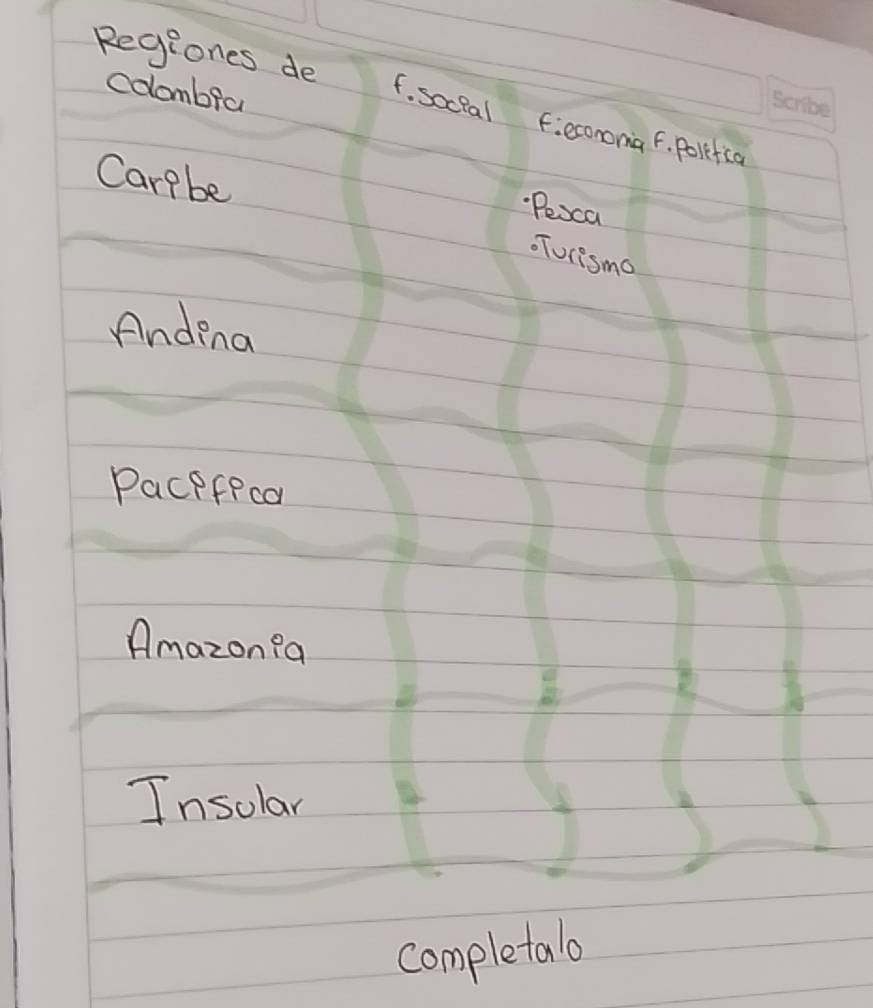 Regiones de
Colombia
f.social
f.economia
F.Política
Scribe
Caribe
•Pesca
•Turismo
Andina
Pacifica
Amazonia
Insular
completalo